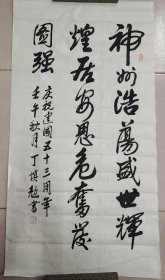 神州浩荡盛世辉
煌居安思危奋发
图强
庆祝建国五十三周年
壬午秋月丁慎勉书